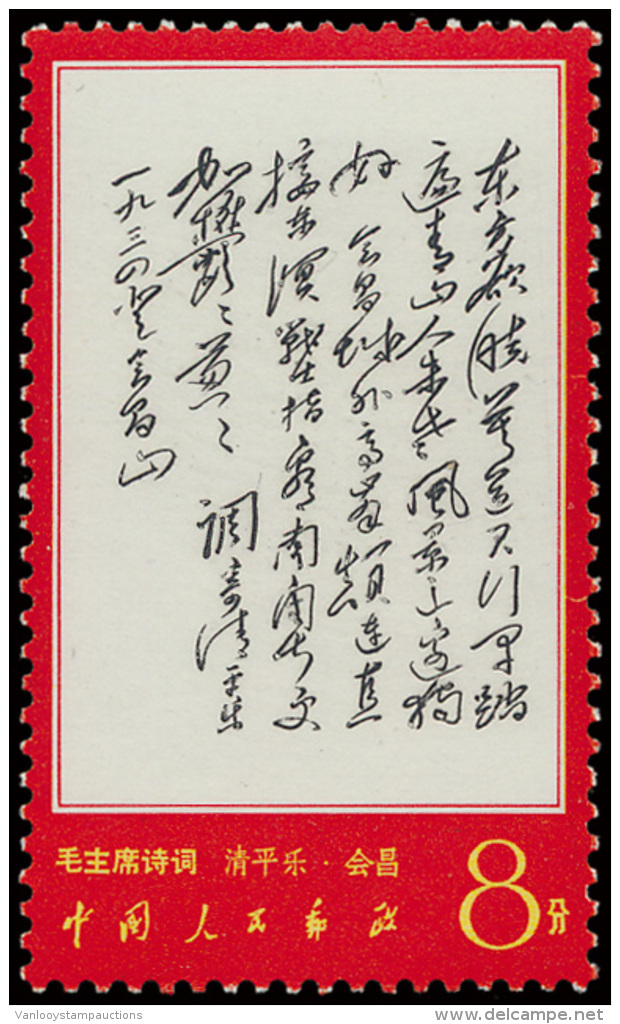 东方欲晓莫道君行早踏
遍青山人未老風景这边獨
好 会昌城外高峯顛連直
接东溟戰士指看南粤更
加鬱〻葱〻 調寄清平乐
一九三四登会昌山
毛主席诗词 清平乐·会昌
中国人民邮政
8分
Vanlooystampauctions
delcampe.net